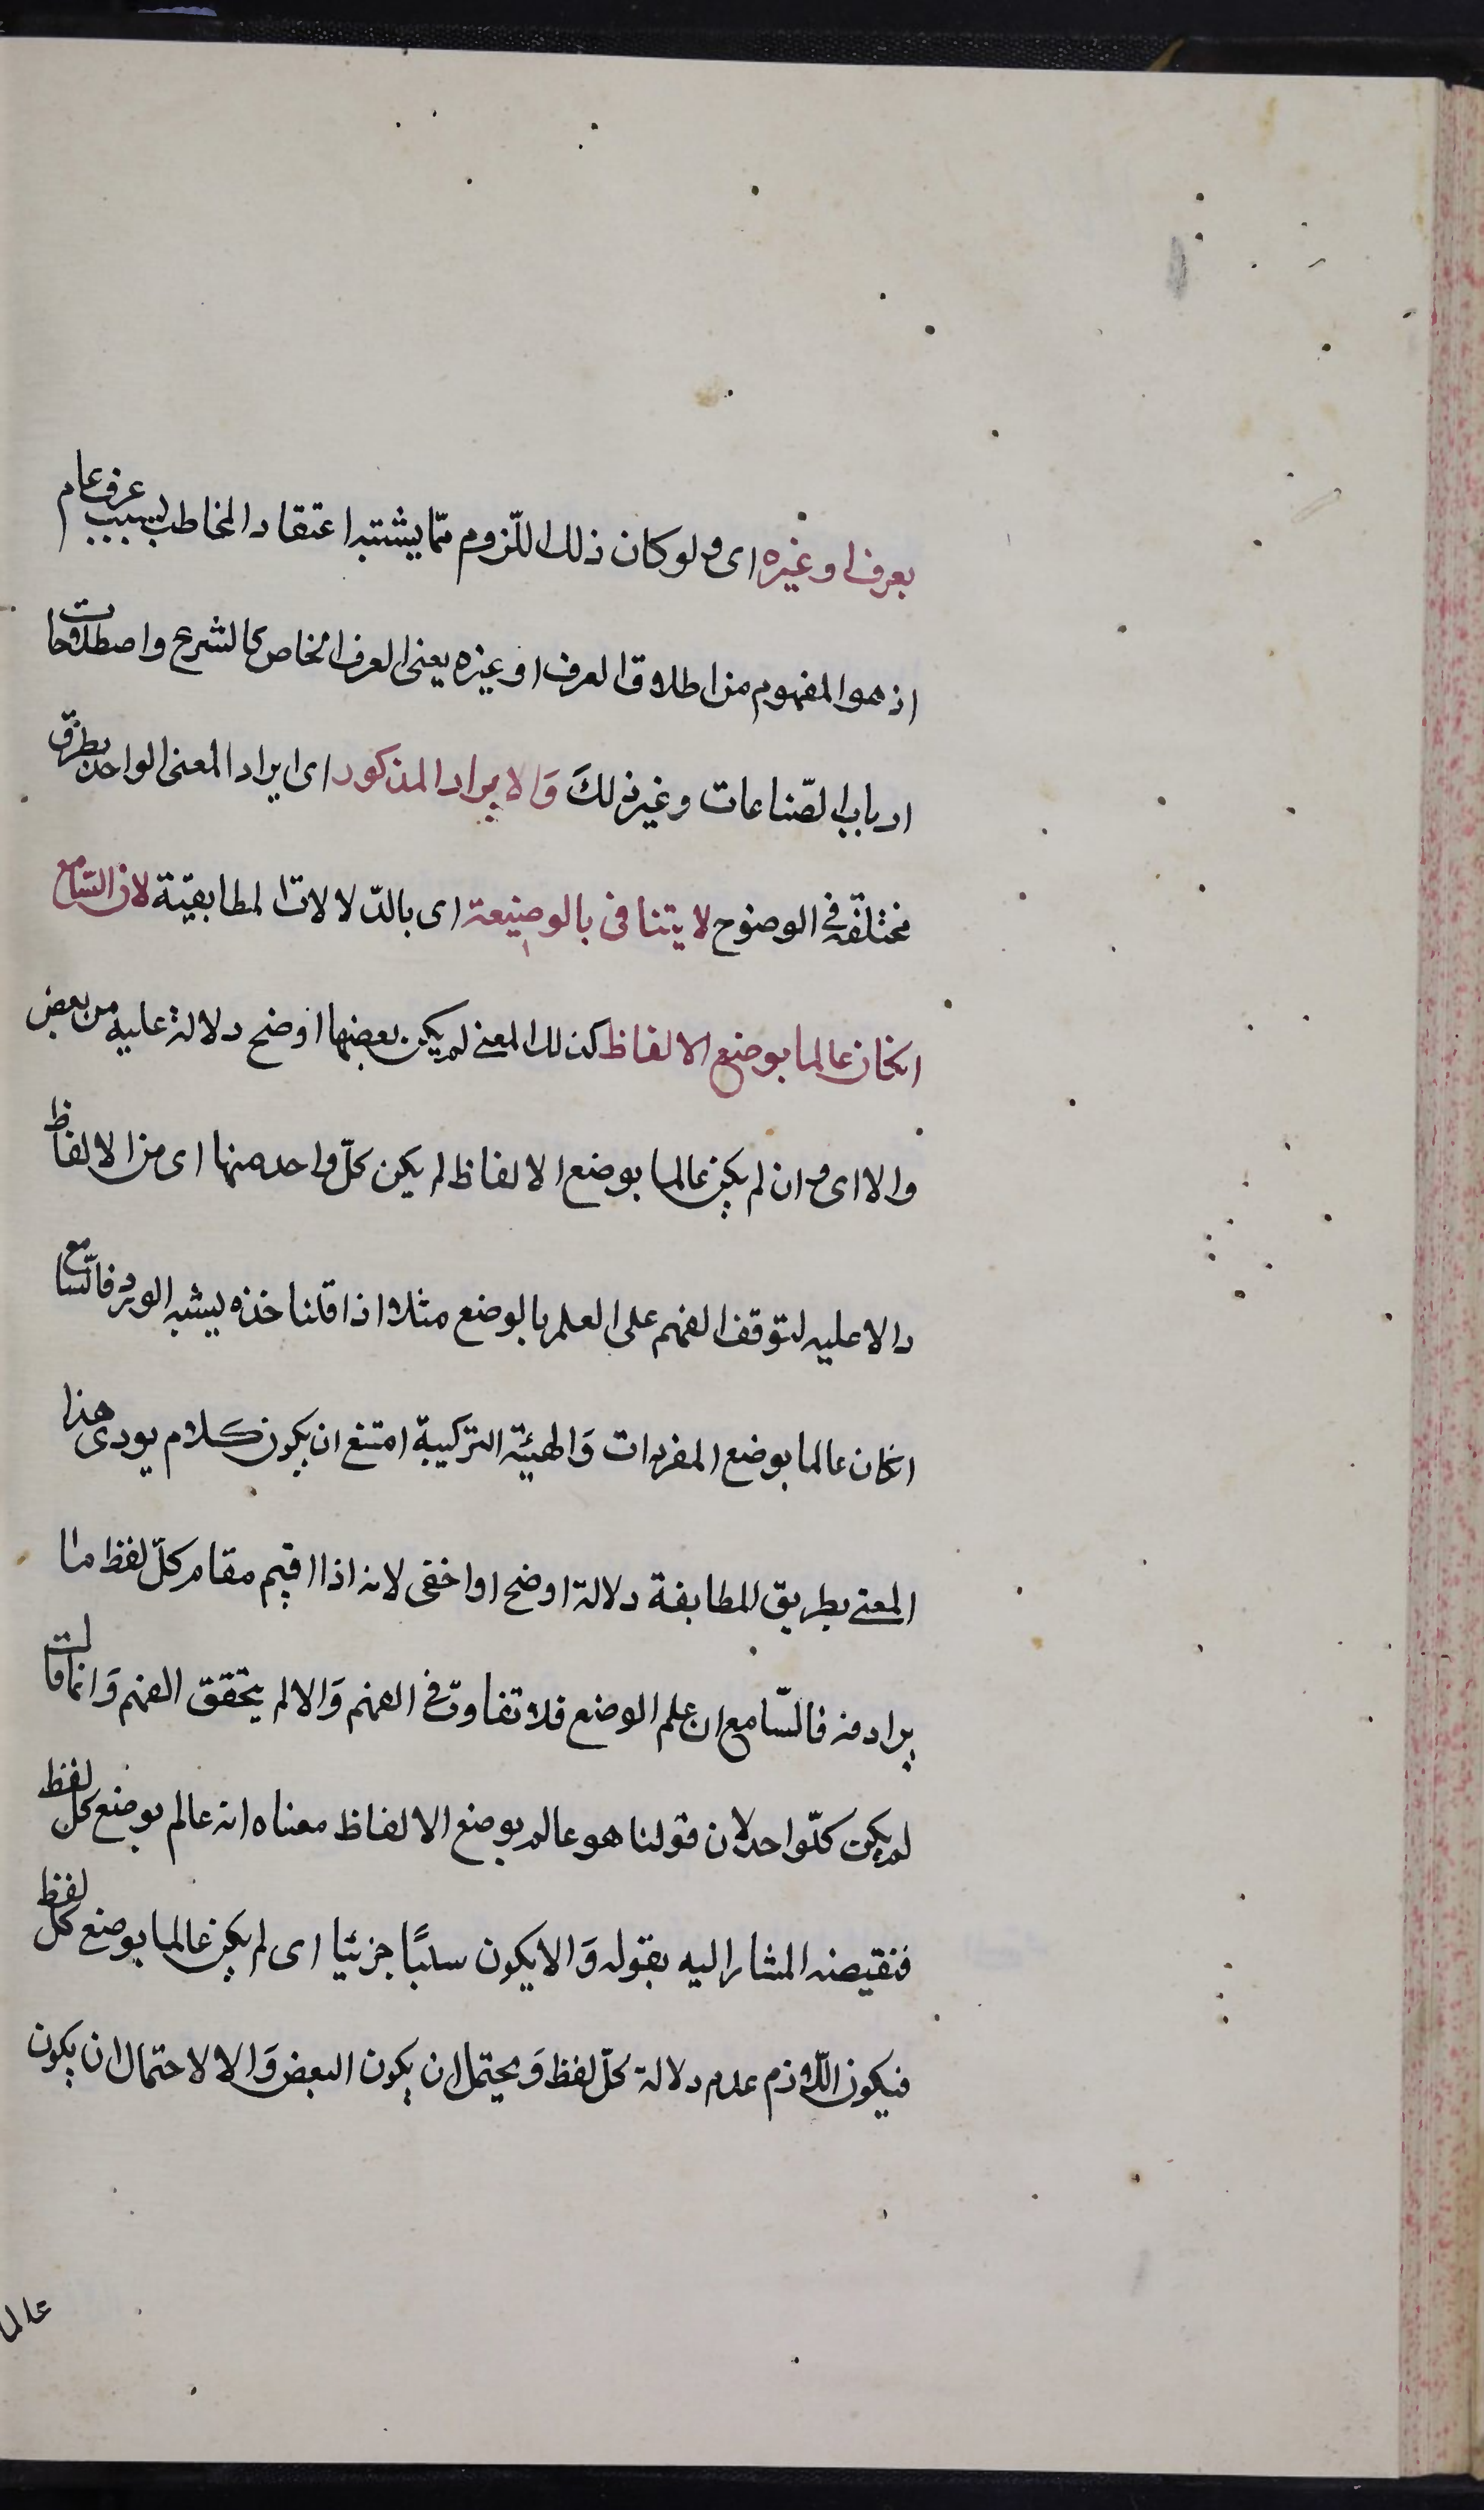 بعرف او غيره اى ولو كان ذلك اللّزوم ممّا يثبته اعتقاد المخاطب بسبب عرف عام
اذ هو المفهوم من اطلاق العرف او غيره يعنى العرف الخاص كالشرع واصطلاحات
ارباب الصّناعات وغير ذلكَ وَالايراد المذكور اى ايراد المعنى الواحد بطرق
مختلفة فى الوضوح لا يتنافى بالوضيعة اى بالدّلالات المطابقيّة لان السّامع
انكان عالما بوضع الالفاظ كذلك المعنى لم يكن بعضها اوضح دلالة عليه من بعض
والا اى وان لم يكن عالما بوضع الالفاظ لم يكن كلّ واحد منها اى من الالفاظ
دالا عليه لتوقف الفهم على العلم بالوضع مثلا اذا قلنا خذه يشبه الورد فالسّامع
انكان عالما بوضع المفردات وَالهيئة التركيبة امتنع ان يكون كلام يودى هذا
المعنى بطريق المطابقة دلالة اوضح او اخفى لانه اذا اقيم مقام كلّ لفظ ما
يرادفه فالسّامع ان علم الوضع فلا تفاوت فى الفهم وَالا لم يتحقق الفهم وَانما قالت
لم يكن كلّ واحد لان قولنا هو عالم بوضع الالفاظ معناه انه عالم بوضع كلّ لفظ
فنقيضه المشار اليه بقوله وَالا يكون سلبًا جزئيا اى لم يكن عالما بوضع كلّ لفظ
فيكون اللّازم عدم دلالة كلّ لفظ وَيحتمل ان يكون البعض وَالا لاحتمال ان يكون
عالما